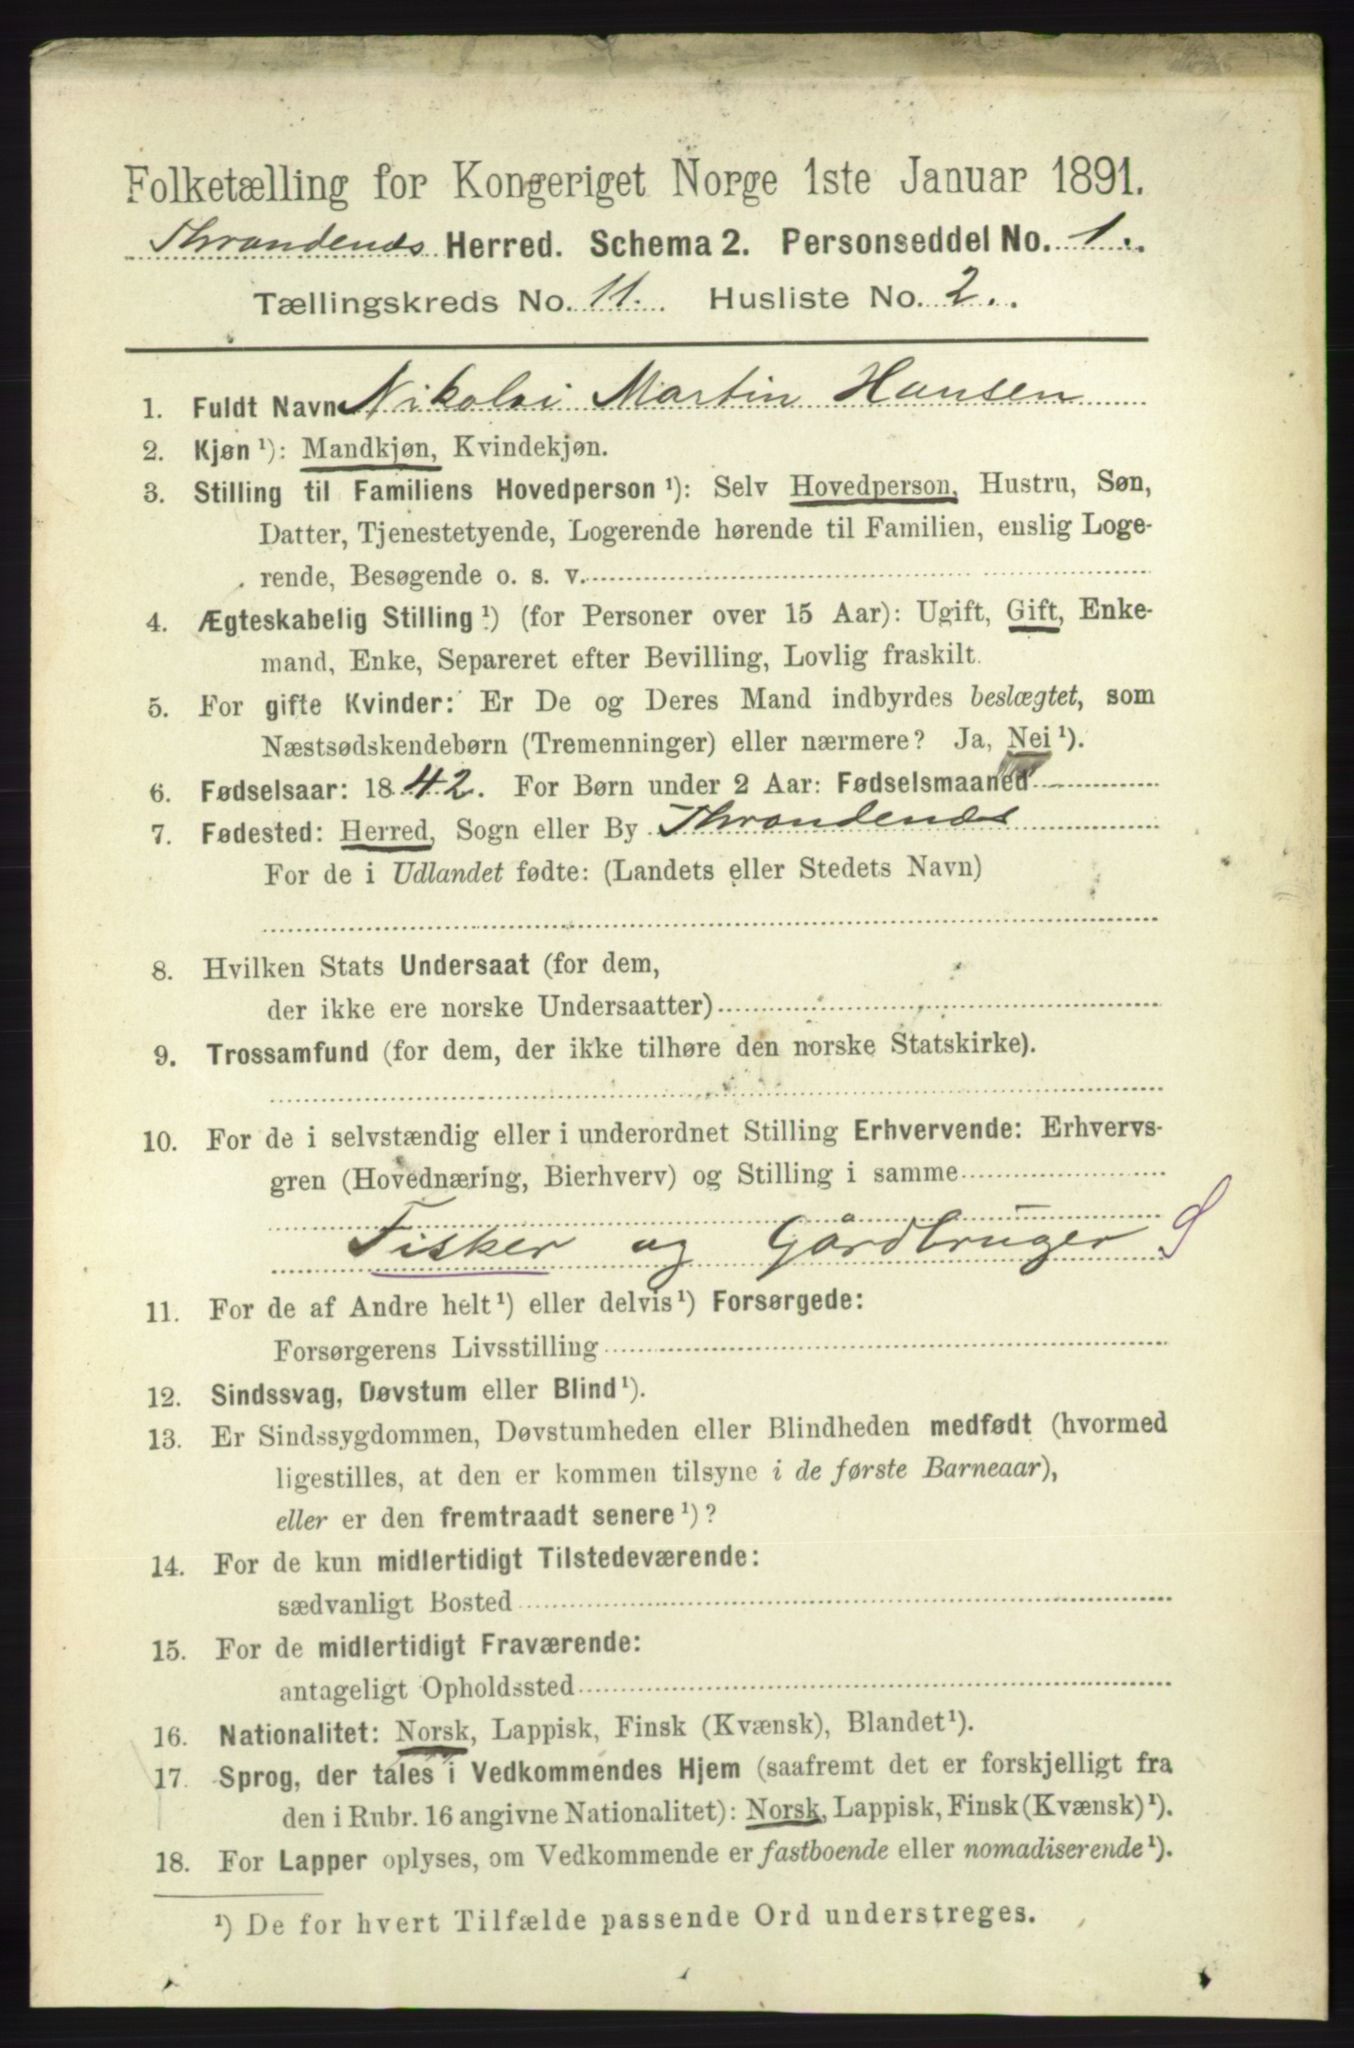 Folketælling for Kongeriget Norge 1ste Januar 1891.
Throndenæs Herred. Schema 2. Personseddel No. 1.
Tællingskreds No. 11. Husliste No. 2.
1. Fuldt Navn Nikolai Martin Hansen
2. Kjøn ¹): Mandkjøn, Kvindekjøn.
3. Stilling til Familiens Hovedperson ¹): Selv Hovedperson, Hustru, Søn,
Datter, Tjenestetyende, Logerende hørende til Familien, enslig Loge-
rende, Besøgende o. s. v.
4. Ægteskabelig Stilling ¹) (for Personer over 15 Aar): Ugift, Gift, Enke-
mand, Enke, Separeret efter Bevilling, Lovlig fraskilt.
5. For gifte Kvinder: Er De og Deres Mand indbyrdes beslægtet, som
Næstsødskendebørn (Tremenninger) eller nærmere? Ja, Nei ¹).
6. Fødselsaar: 1842. For Børn under 2 Aar: Fødselsmaaned
7. Fødested: Herred, Sogn eller By Throndenæs
For de i Udlandet fødte: (Landets eller Stedets Navn)
8. Hvilken Stats Undersaat (for dem,
der ikke ere norske Undersaatter)
9. Trossamfund (for dem, der ikke tilhøre den norske Statskirke).
10. For de i selvstændig eller i underordnet Stilling Erhvervende: Erhvervs-
gren (Hovednæring, Bierhverv) og Stilling i samme
Fisker og Gårdbruger S
11. For de af Andre helt ¹) eller delvis ¹) Forsørgede:
Forsørgerens Livsstilling
12. Sindssvag, Døvstum eller Blind ¹).
13. Er Sindssygdommen, Døvstumheden eller Blindheden medfødt (hvormed
ligestilles, at den er kommen tilsyne i de første Barneaar),
eller er den fremtraadt senere ¹)?
14. For de kun midlertidigt Tilstedeværende:
sædvanligt Bosted
15. For de midlertidigt Fraværende:
antageligt Opholdssted
16. Nationalitet: Norsk, Lappisk, Finsk (Kvænsk), Blandet ¹).
17. Sprog, der tales i Vedkommendes Hjem (saafremt det er forskjelligt fra
den i Rubr. 16 angivne Nationalitet): Norsk, Lappisk, Finsk (Kvænsk) ¹).
18. For Lapper oplyses, om Vedkommende er fastboende eller nomadiserende ¹).
¹) De for hvert Tilfælde passende Ord understreges.